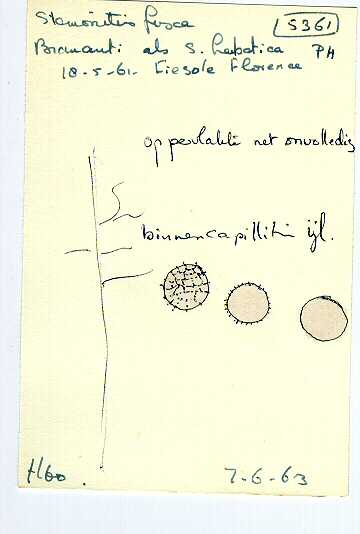 Stemonitis fusca S361
als S. hepatica PH
18-5-61. Fiesole Florence
oppervlakte net onvolledig
binnencapillitium ijl.
7-6-63